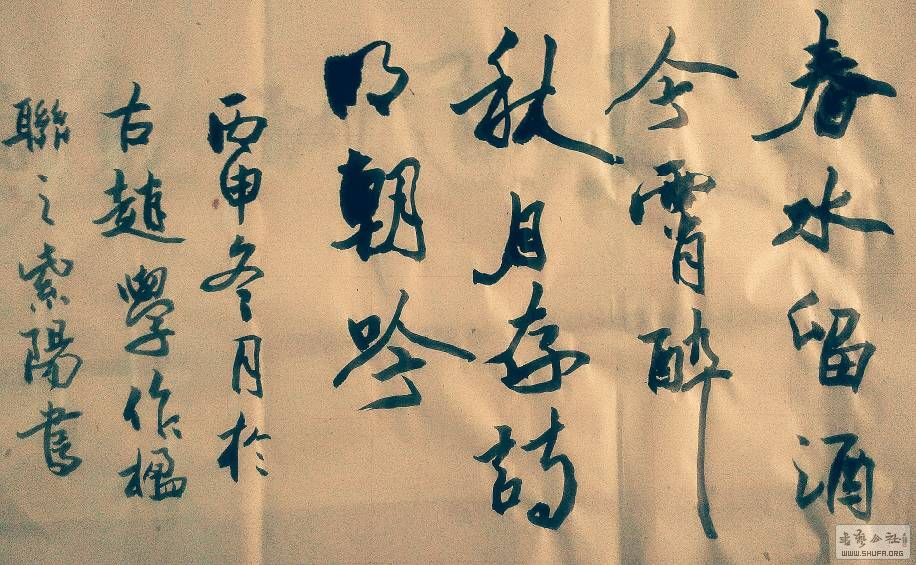 春水留酒
今霄醉
秋月存詩
明朝吟
丙申冬月於
古趙學作楹
聯之紫陽書
书艺公社
WWW.SHUFA.ORG